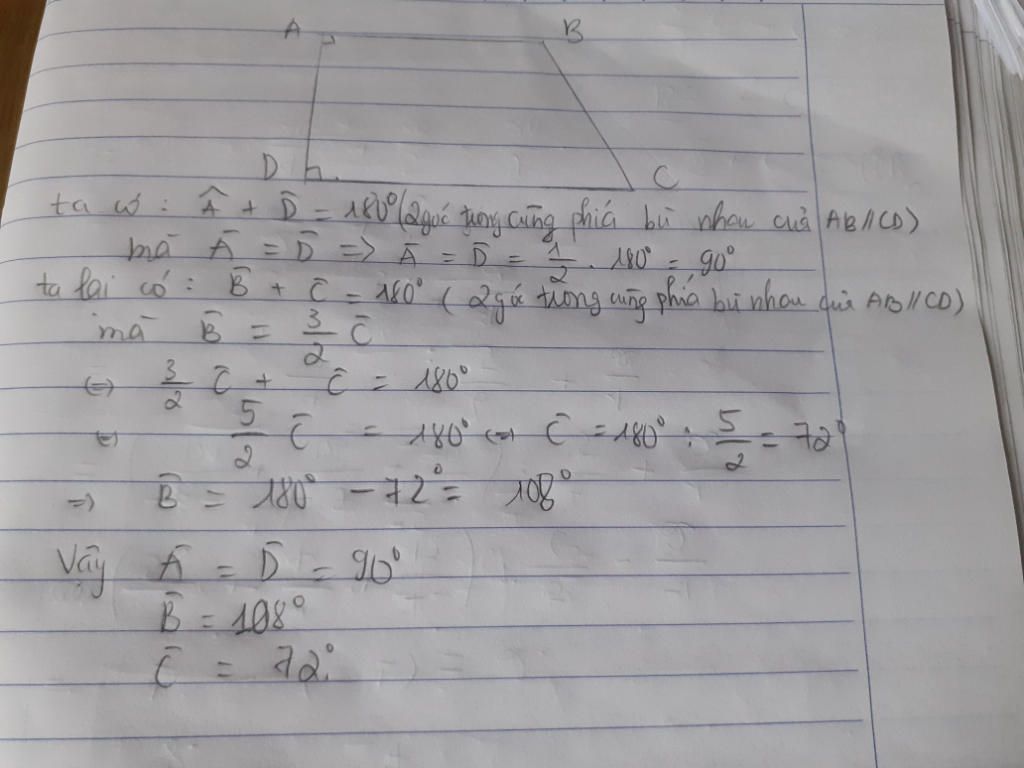 A B
D C
ta có : Â + D̄ = 180° (2 góc trong cùng phía bù nhau của AB//CD)
mà Ā = D̄ => Ā = D̄ = 1/2 . 180° = 90°
ta lại có : B̄ + C̄ = 180° ( 2 góc trong cùng phía bù nhau của AB//CD)
mà B̄ = 3/2 C̄
<=> 3/2 C̄ + C̄ = 180°
<=> 5/2 C̄ = 180° <=> C̄ = 180° : 5/2 = 72°
=> B̄ = 180° - 72° = 108°
Vậy Ā = D̄ = 90°
B̄ = 108°
C̄ = 72°